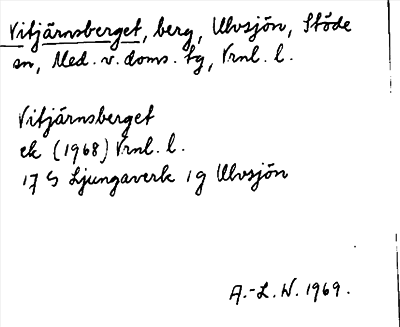 Vitjärnsberget, berg, Ulvsjön, Stöde
sn, Med. v. doms. tg, Vrnl. l.
Vitjärnsberget
ek (1968) Vrnl. l.
17 G Ljungaverk 1 g Ulvsjön
A.-L. W. 1969.